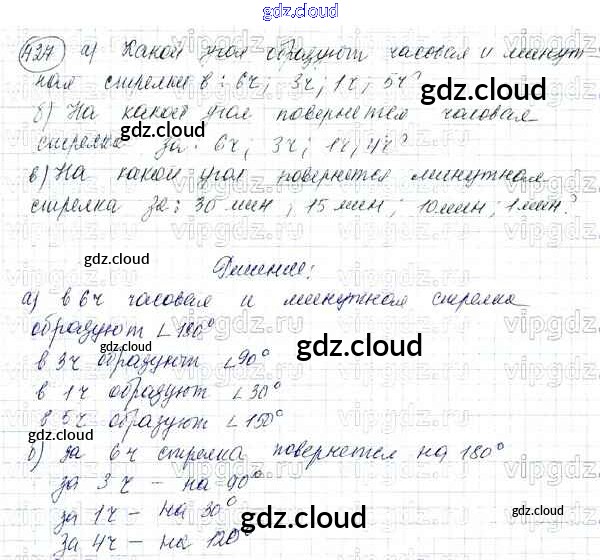 gdz.cloud
427 а) Какой угол образуют часовая и минут-
ная стрелки в: 6ч; 3ч; 1ч; 5ч?
б) На какой угол повернется часовая
стрелка за: 6ч, 3ч, 1ч, 4ч?
в) На какой угол повернется минутная
стрелка за: 30 мин; 15 мин; 10 мин; 1 мин?
Решение:
а) в 6ч часовая и минутная стрелка
образуют ∠180°
в 3ч образуют ∠90°
в 1ч образуют ∠30°
в 5ч образуют ∠150°
б) за 6ч стрелка повернется на 180°
за 3ч – на 90°
за 1ч – на 30°
за 4ч – на 120°
gdz.cloud
gdz.cloud
gdz.cloud
gdz.cloud
gdz.cloud
gdz.cloud
gdz.cloud
gdz.cloud
vipgdz.ru